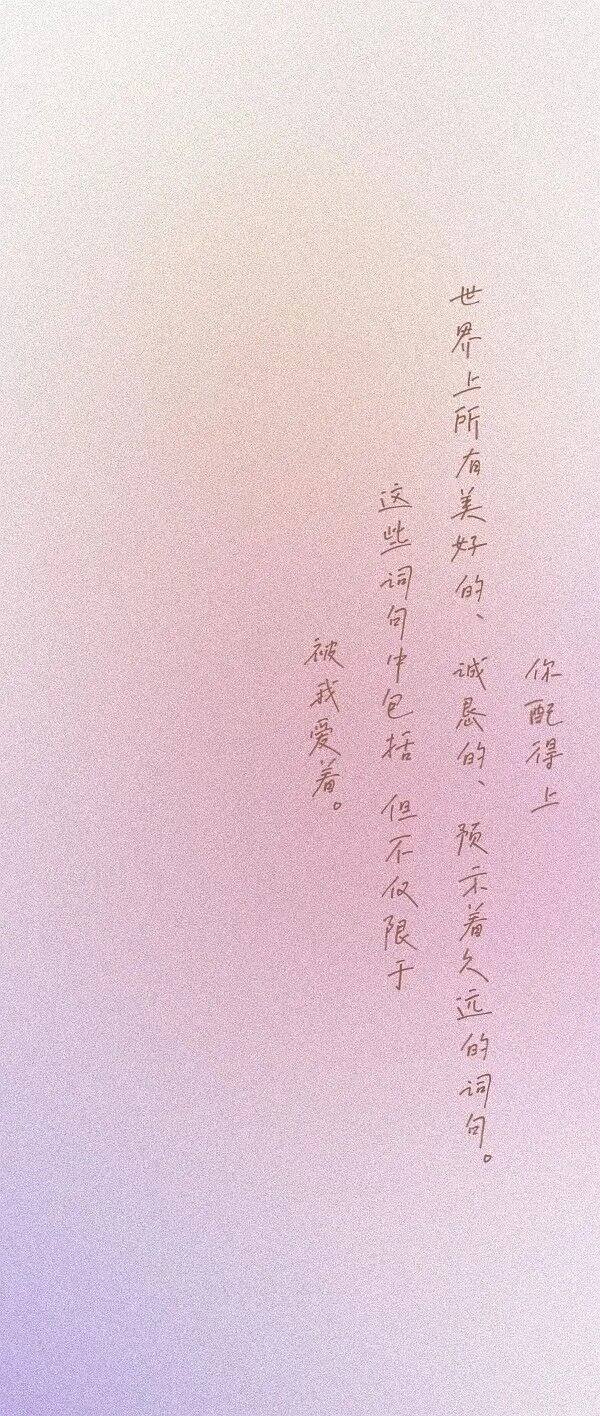 你配得上
世界上所有美好的、诚恳的、预示着久远的词句。
这些词句中包括 但不仅限于
被我爱着。